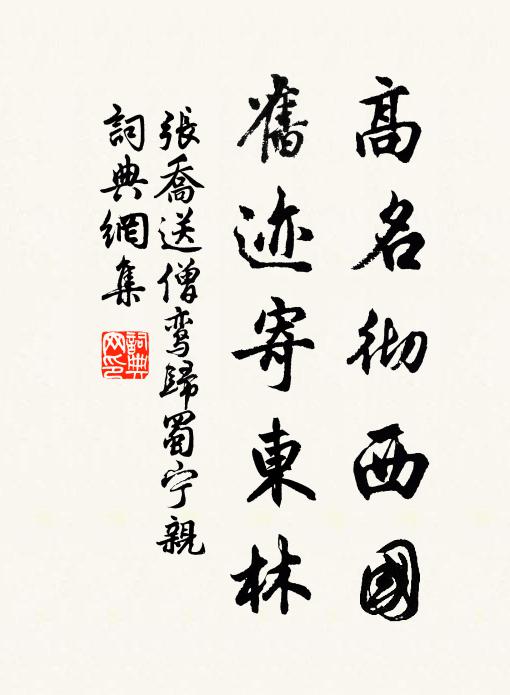 高名彻西國
舊迹寄東林
張喬送僧鸾歸蜀宁親
詞典網集
詞典
网印